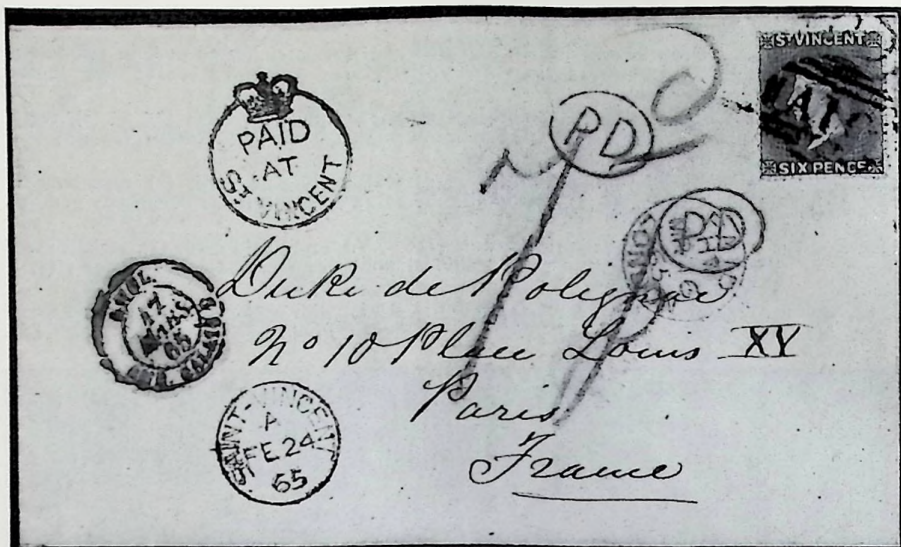 ST VINCENT
SIX PENCE
A10
PAID
AT
ST VINCENT
PD
PD
LONDON
Duke de Polignac
No 10 Place Louis XV
Paris
France
17
MARS
65
CALAIS
SAINT-VINCENT
A
FE 24
65